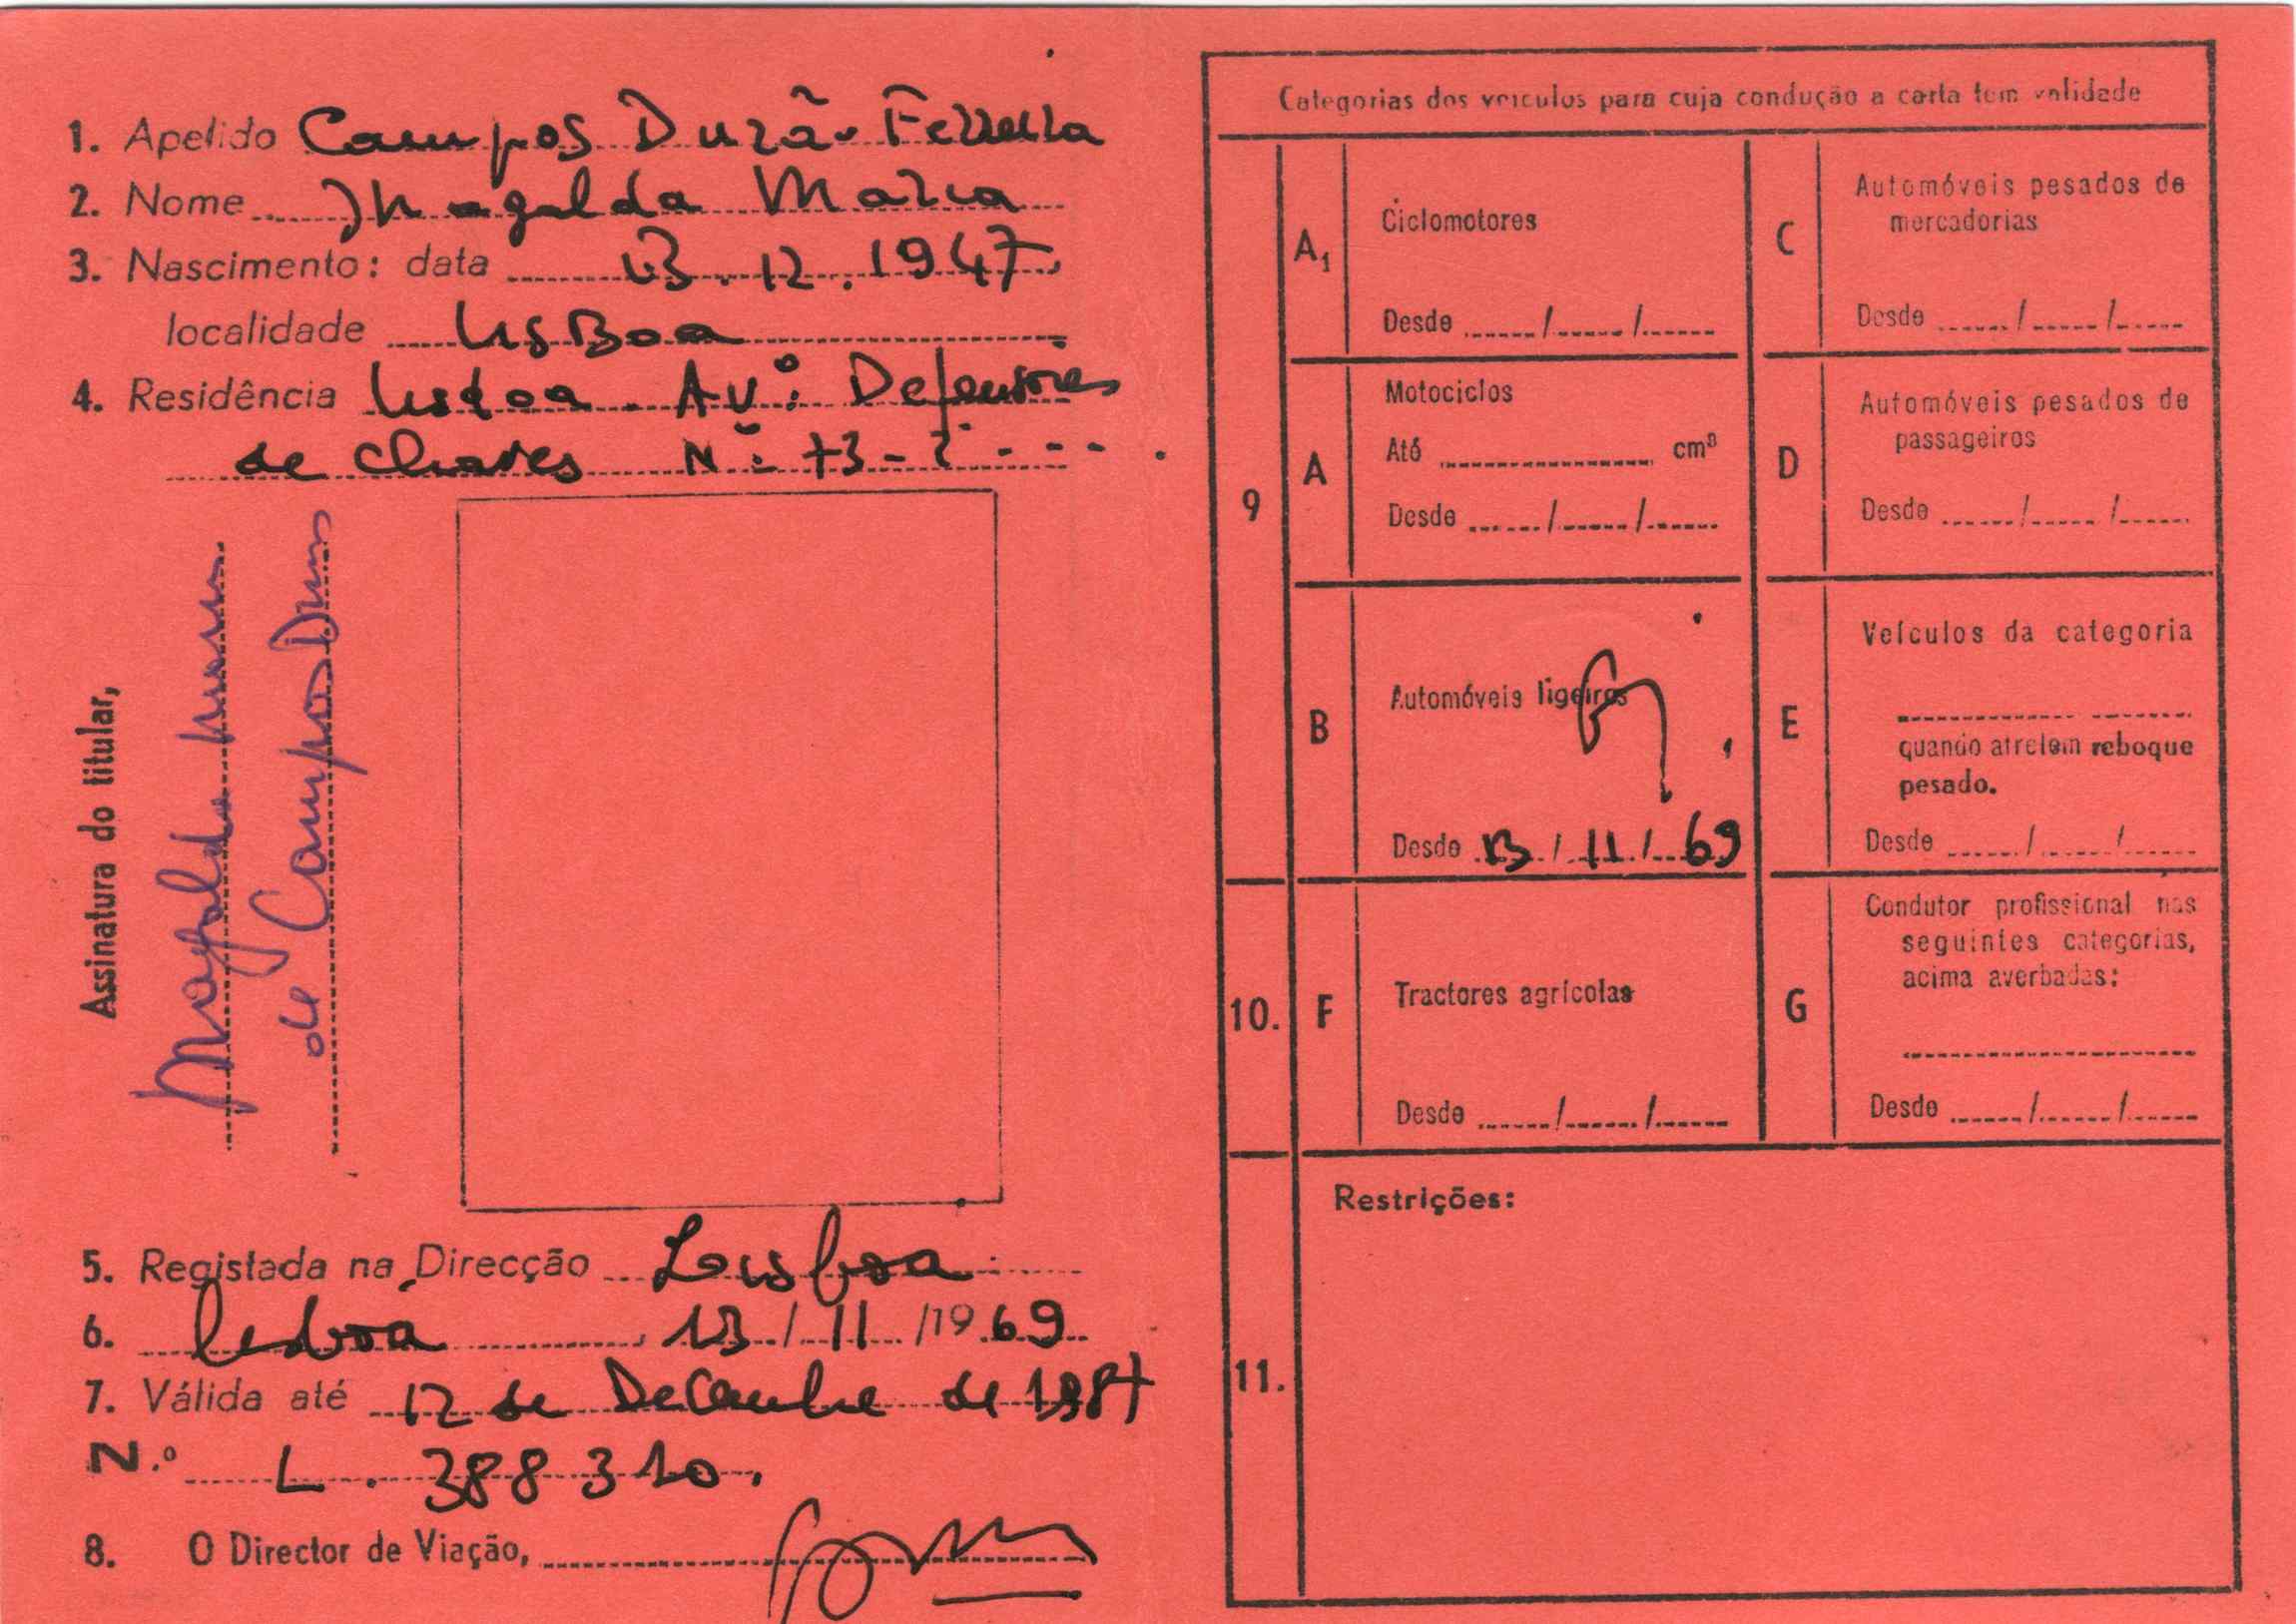 1. Apelido Campos Durão Ferreira
2. Nome Magalda Maria
3. Nascimento: data 13.12.1947
localidade Lisboa
4. Residência Lisboa. Av.: Defensores
de Chaves Nº 73-2
Assinatura do titular,
Magalda Maria
de Campos Durão
5. Registada na Direcção Lisboa
6. Lisboa, 13/11/1969
7. Válida até 12 de Dezembro de 1987
N.º L. 388310.
8. O Director de Viação,
Categorias dos veículos para cuja condução a carta tem validade
9
A1 Ciclomotores
Desde / /
A Motociclos
Até cm³
Desde / /
B Automóveis ligeiros
Desde 13/11/69
10. F Tractores agrícolas
Desde / /
C Automóveis pesados de
mercadorias
Desde / /
D Automóveis pesados de
passageiros
Desde / /
E Veículos da categoria
quando atrelem reboque
pesado.
Desde / /
G Condutor profissional nas
seguintes categorias,
acima averbadas:
Desde / /
11. Restrições: